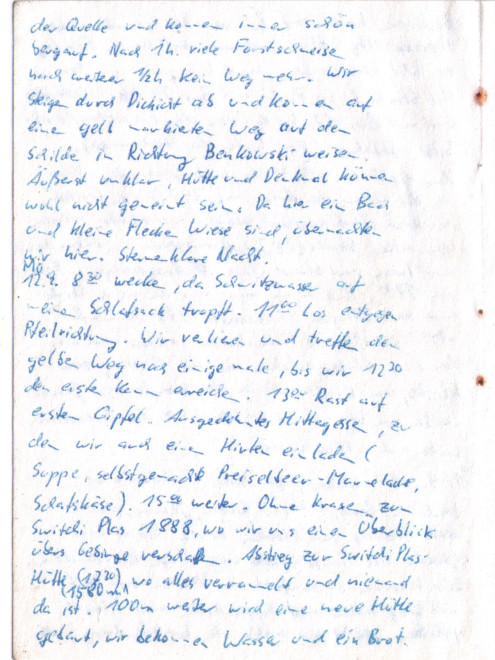 der Quelle und kommen immer schön
bergauf. Nach 1h. viele Forstschneise
nach weiter 1/2h kein Weg mehr. Wir
steigen durch Dickicht ab und kommen auf
eine gelb markierten Weg auf dem
Schilde in Richtung Benkowski weisen.
Äußerst unklar, Hütte und Denkmal können
wohl nicht gemeint sein. Da hier ein Bach
und kleine Flecken Wiese sind, übernachten
wir hier. Sternenklare Nacht.
Mo
12.9. 8 30 wecken, da Schwitzwasser auf
meine Schlafsack tropft. 11 00 Los entgegen
Pfeilrichtung. Wir verlieren und treffen den
gelben Weg noch einige male, bis wir 12 30
den ersten Kamm erreichen. 13 00 Rast auf
ersten Gipfel. Ausgedehntes Mittagessen, zu
dem wir auch einen Hirten einladen (
Suppe, selbstgemachte Preiselbeer-Marmelade,
Schafskäse). 15 00 weiter. Ohne Kraxen zum
Switschi Plas 1888, wo wir uns einen Überblick
übers Gebirge verschaffen. Abstieg zur Switschi Plas-
Hütte (17 20), wo alles verrammelt und niemand
(1580m)
da ist. 100m weiter wird eine neue Hütte
gebaut, wir bekommen Wasser und ein Brot.